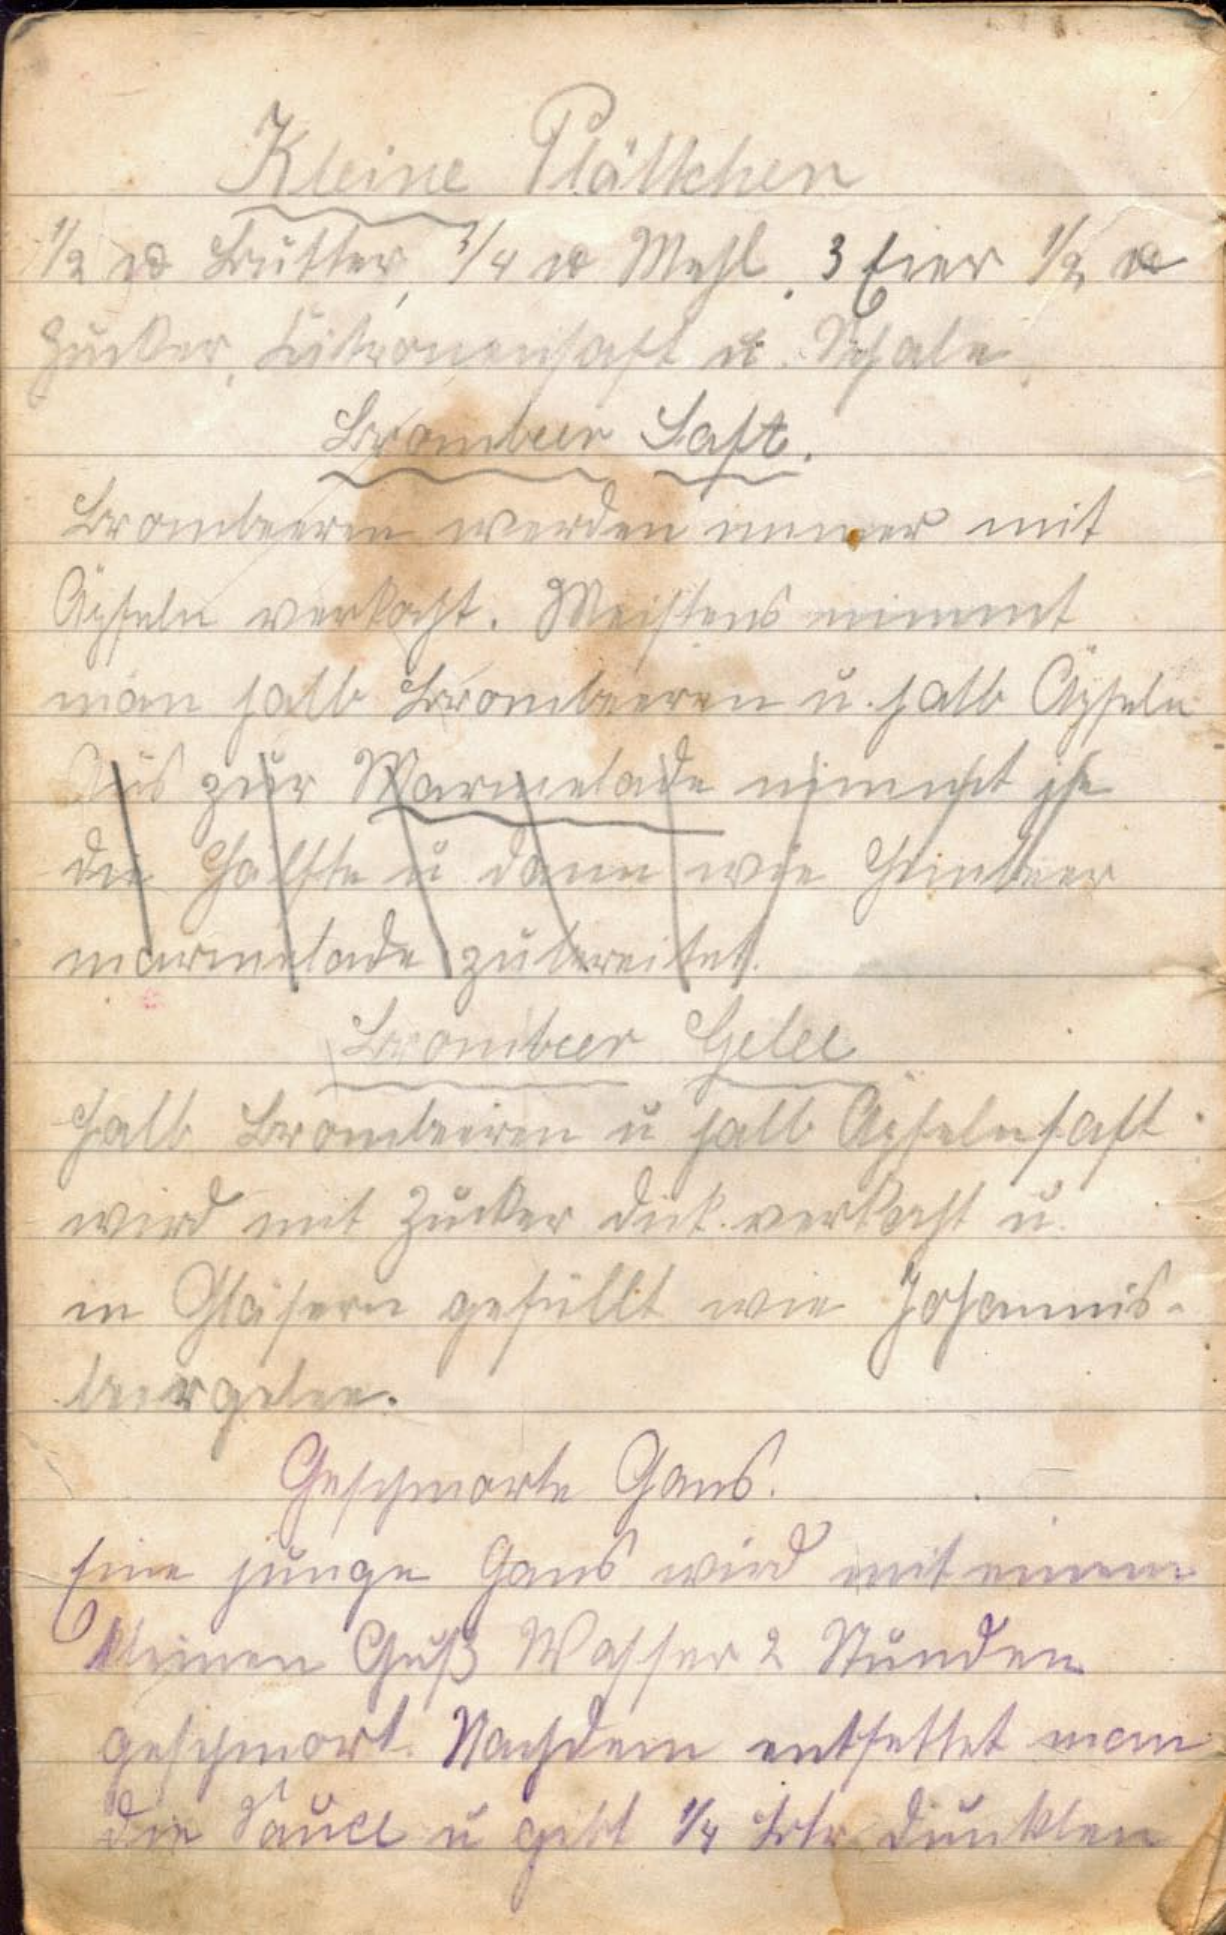 Kleine Plättchen
1/2 ℔ Butter, 3/4 ℔ Mehl. 3 Eier 1/2 ℔
Zucker, Zitronensaft u. Schale
Brombeer Saft.
Brombeeren werden immer mit
Äpfeln verkocht. Meistens nimmt
man halb Brombeeren u. halb Äpfeln
zur Marmelade nimmt
die Hälfte u dann wie Himbeer
marmelade zubereitet.
Brombeer Gelee
Halb Brombeeren u halb Äpfelnsaft
wird mit Zucker dick verkocht u.
in Gläsern gefüllt wie Johannis-
beergelee.
Geschmorte Gans.
Eine junge Gans wird mit einem
kleinen Guß Wasser 2 Stunden
geschmort. Nachdem entfettet man
die Sauce u gibt 1/4 Ltr. dunklen